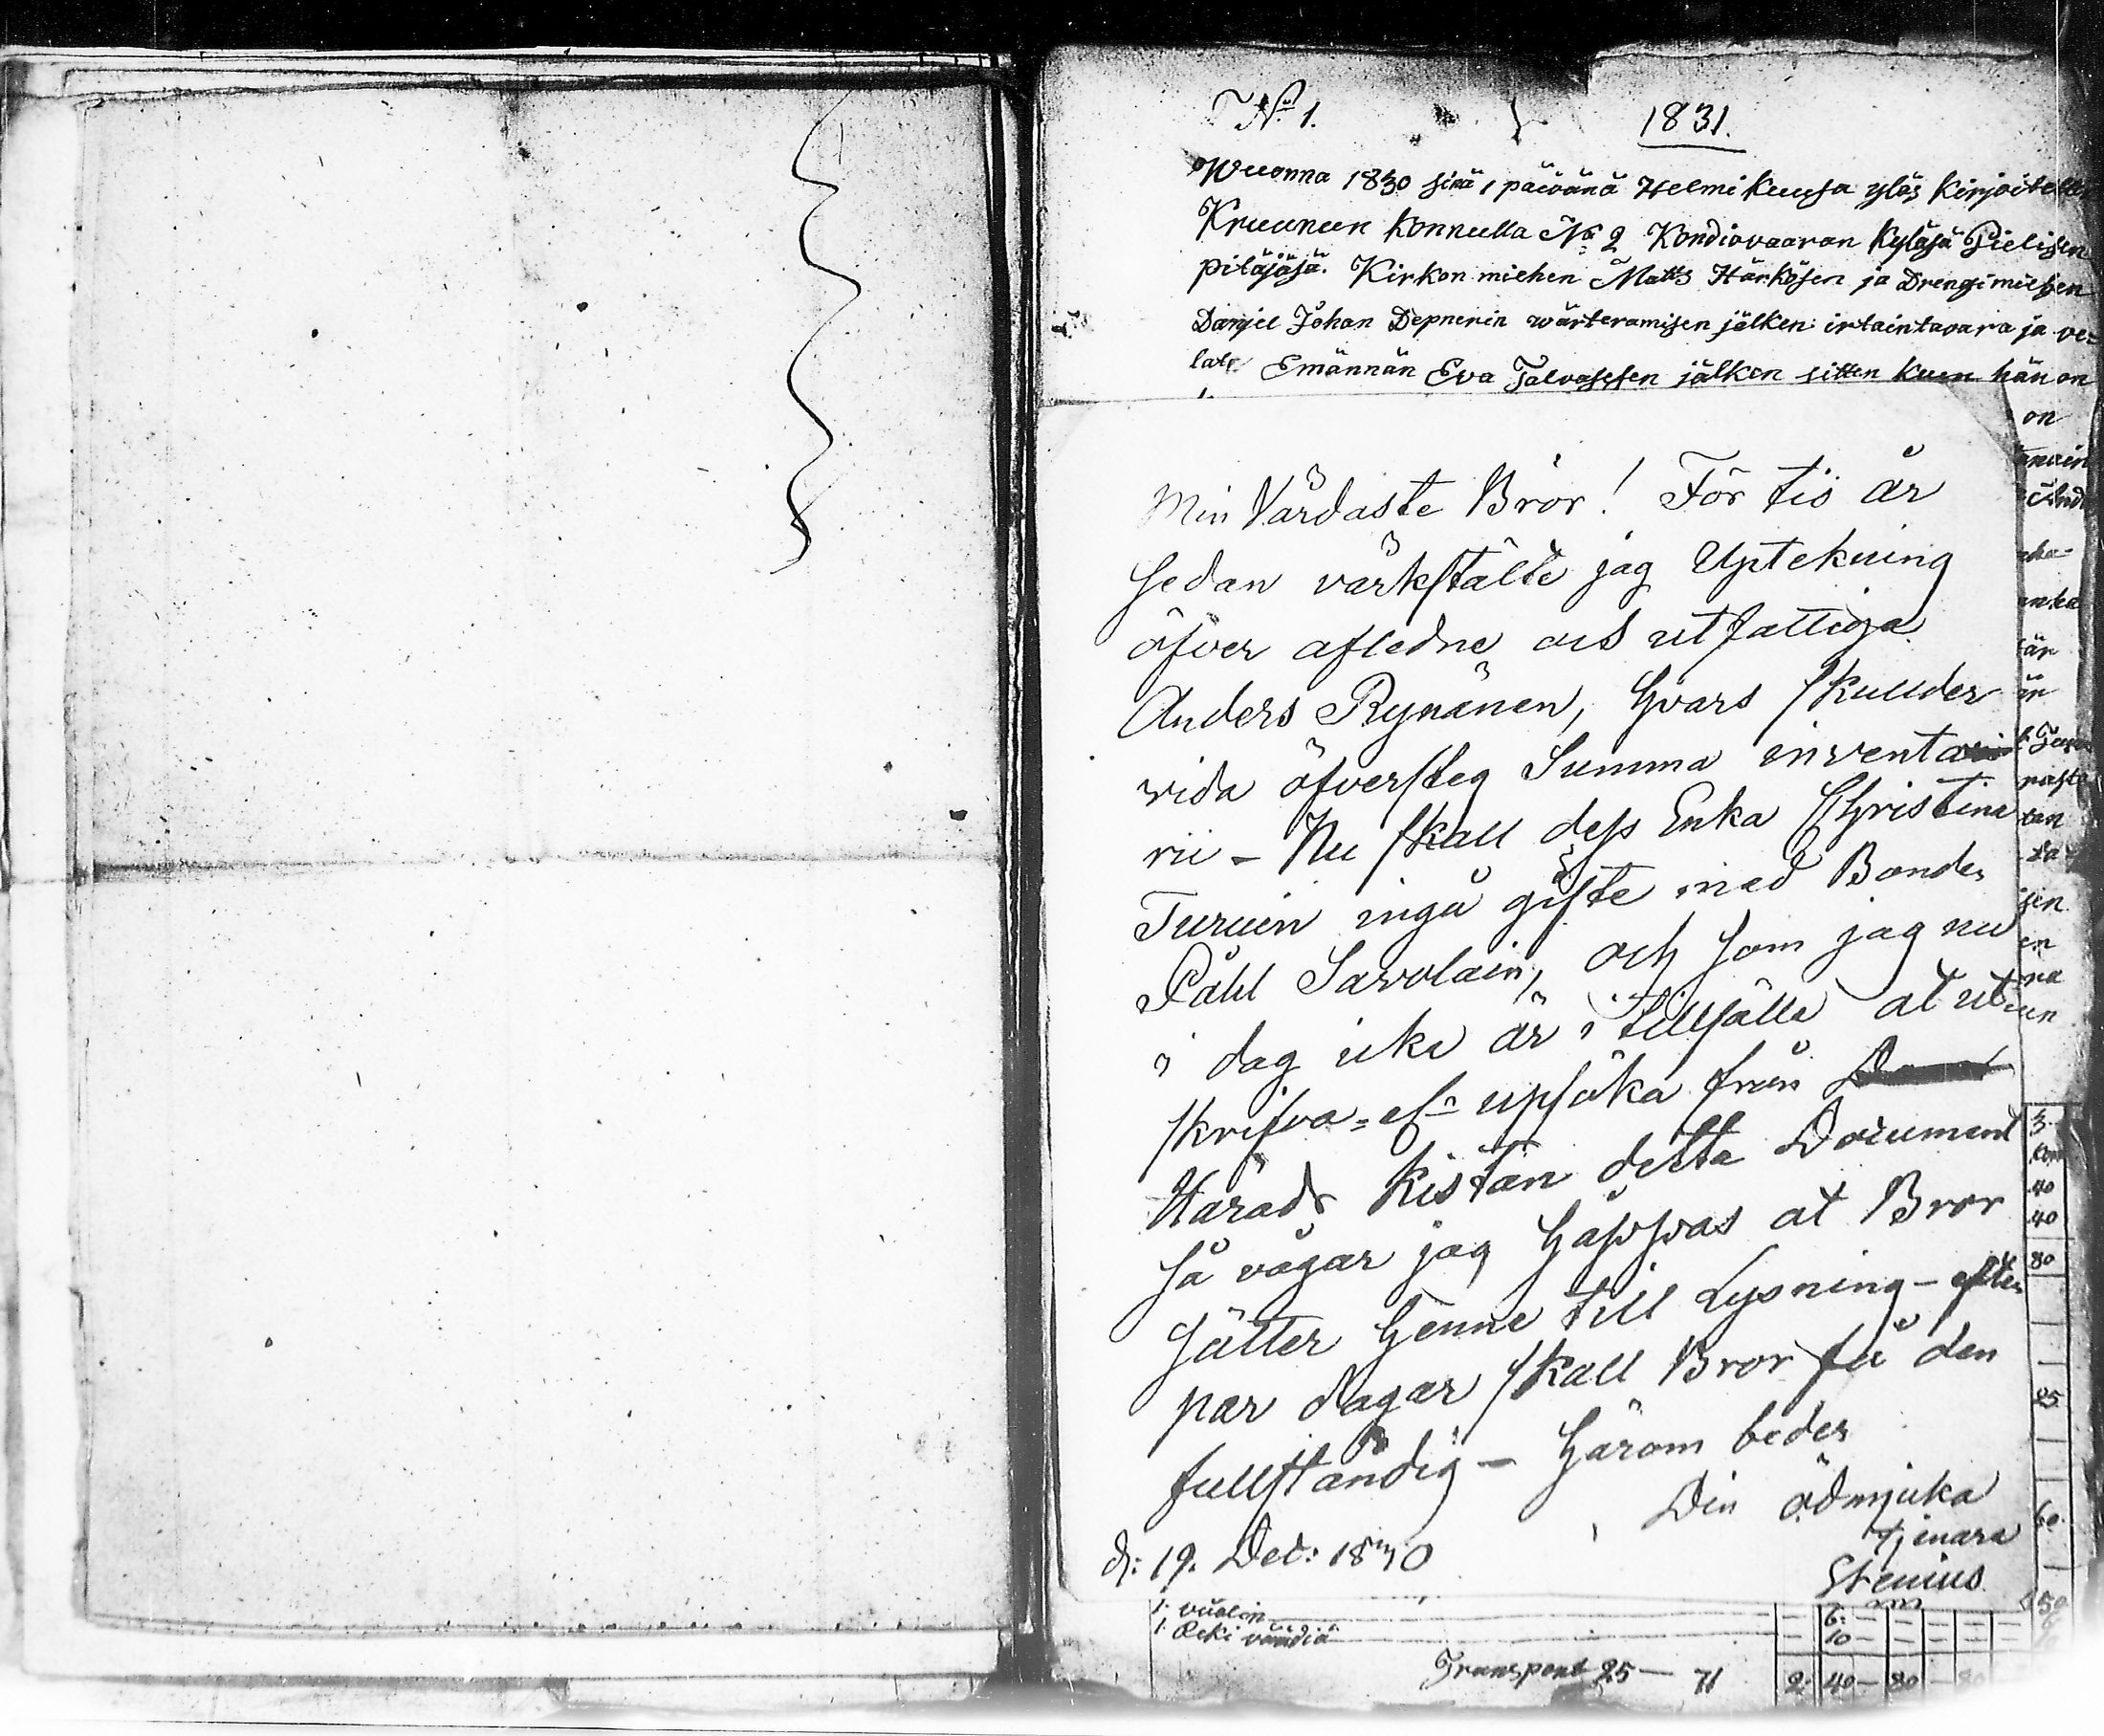 No. 1.
1831.
Wuonna 1830 sinä 1 päivänä Helmikuusa ylös kirjoitettu
Kruunun konnulla No 2 Kondiovaaran Kyläsä Pielisen
pitäjäsä. Kirkon miehen Matts Härkösen ja Drengimiehen
Danjel Johan Depnerin wärteramisen jälken irtaintavara ja ve=
lat Emännän Eva Talvassen jälken sitten kuun hän on
on
Min Vårdaste Bror! För tio år
sedan värkstälte jag Uptekning
öfver afledne ock utfattiga
Anders Rynänen, hvars skullder
vida öfversteg Summa inventa
rii - Nu skall dess Enka Christina
Turuin ingå gifte med Bonden
Påhl Savolain, och som jag nu
i dag icke är i tillfälle at ut
skrifva= el= upsöka från
Härads kistan detta Document
så vågar jag hoppas at Bror
sätter henne till Lysning - efter
par dagar skall Bror få den
fullständig - härom beder
Din ödmjuka
tjenare
Stenius
d: 19. Dec: 1830
3.
40
40
80
25
60
50
1. vuolin — 6: —
1. Reki vändiä — 10 —
Transport 25 — 71 2: 40 — 80